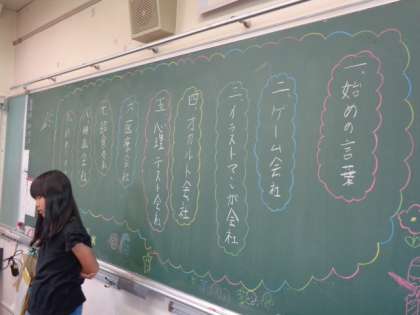 一、始めの言葉
二、ゲーム会社
三、イラストマンガ会社
四、オカルト会社
五、心理テスト会社
六、医療会社